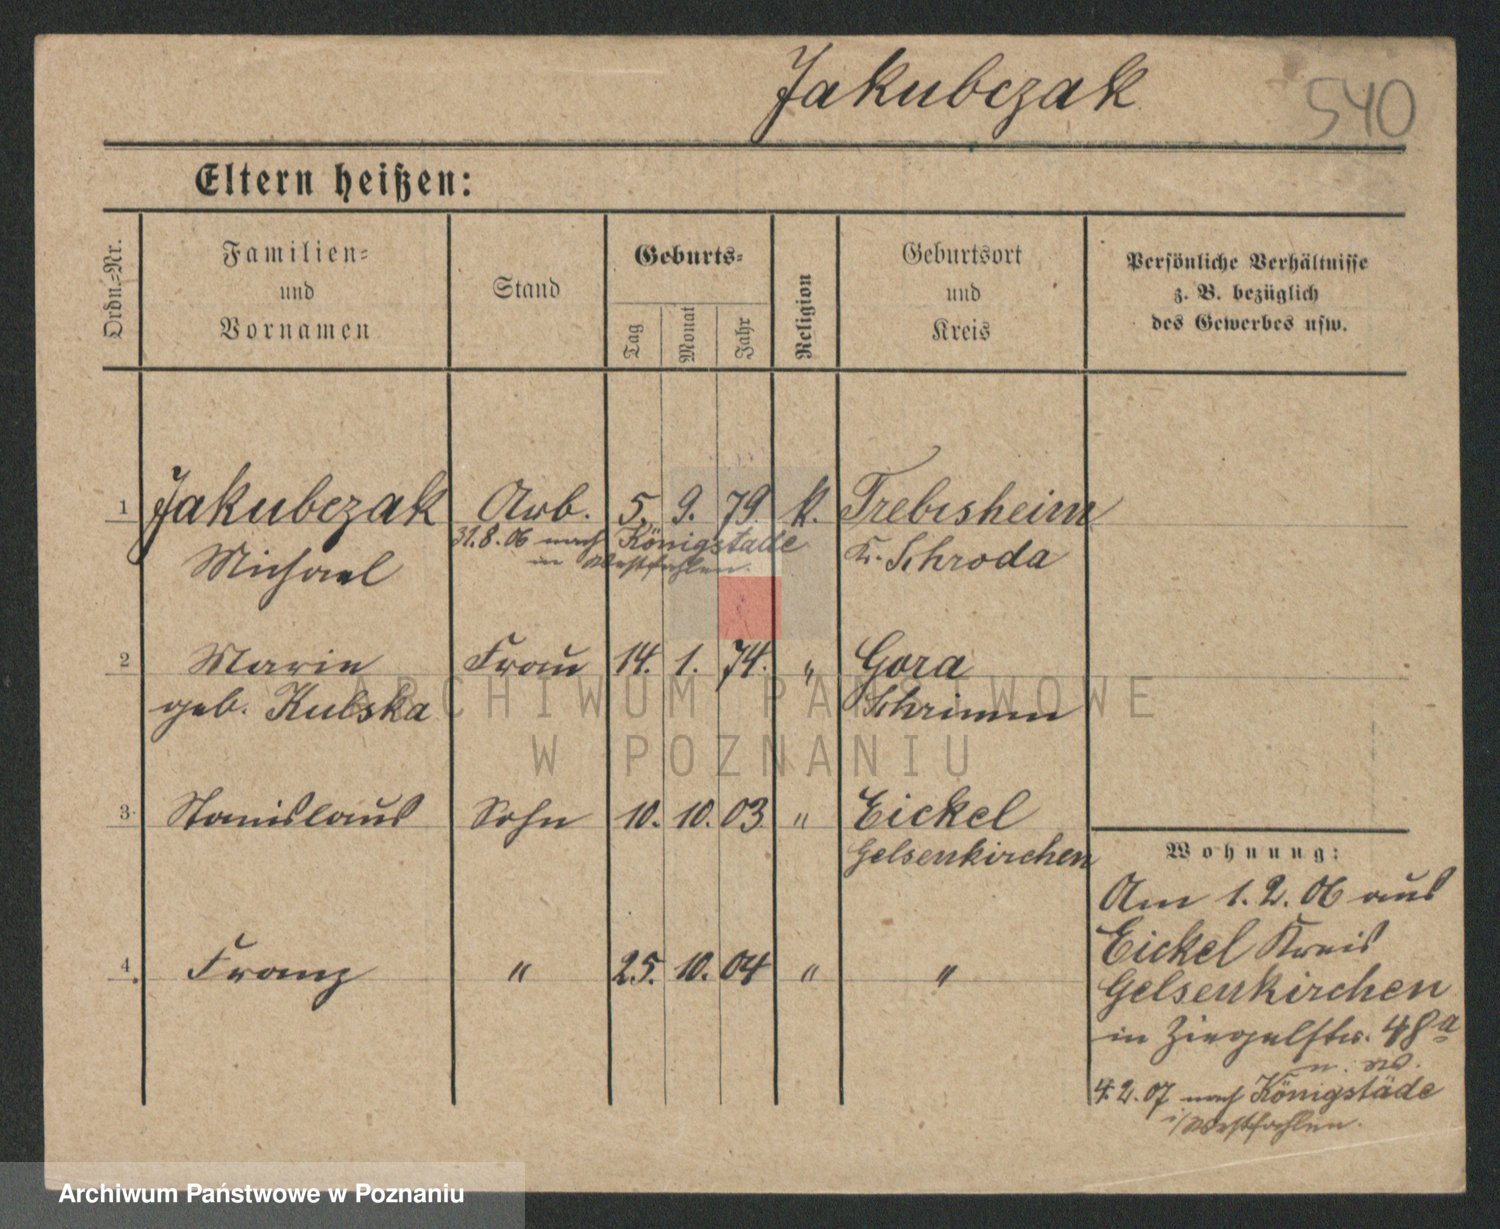 Jakubczak
540
Eltern heißen:
Ordn.=Nr.
Familien=
und
Vornamen
Stand
Geburts=
Tag
Monat
Jahr
Religion
Geburtsort
und
Kreis
Persönliche Verhältnisse
z. B. bezüglich
des Gewerbes usw.
1 Jakubczak Arb. 5. 9. 79. k. Trebisheim
31.8.06 nach Königstade
in Westfahlen.
Michael Kr. Schroda
2 Marie Frau 14. 1. 74. " Gora
geb. Kubska Schrimm
3 Stanislaus Sohn 10. 10. 03. " Eickel
Gelsenkirchen
4. Franz " 25. 10. 04 " "
Wohnung:
Am 1. 2. 06 aus
Eickel Kreis
Gelsenkirchen
in Ziegelstr. 48a
4. 2. 07 nach Königstäde
i/Westfahlen.
ARCHIWUM PAŃSTWOWE
W POZNANIU
Archiwum Państwowe w Poznaniu